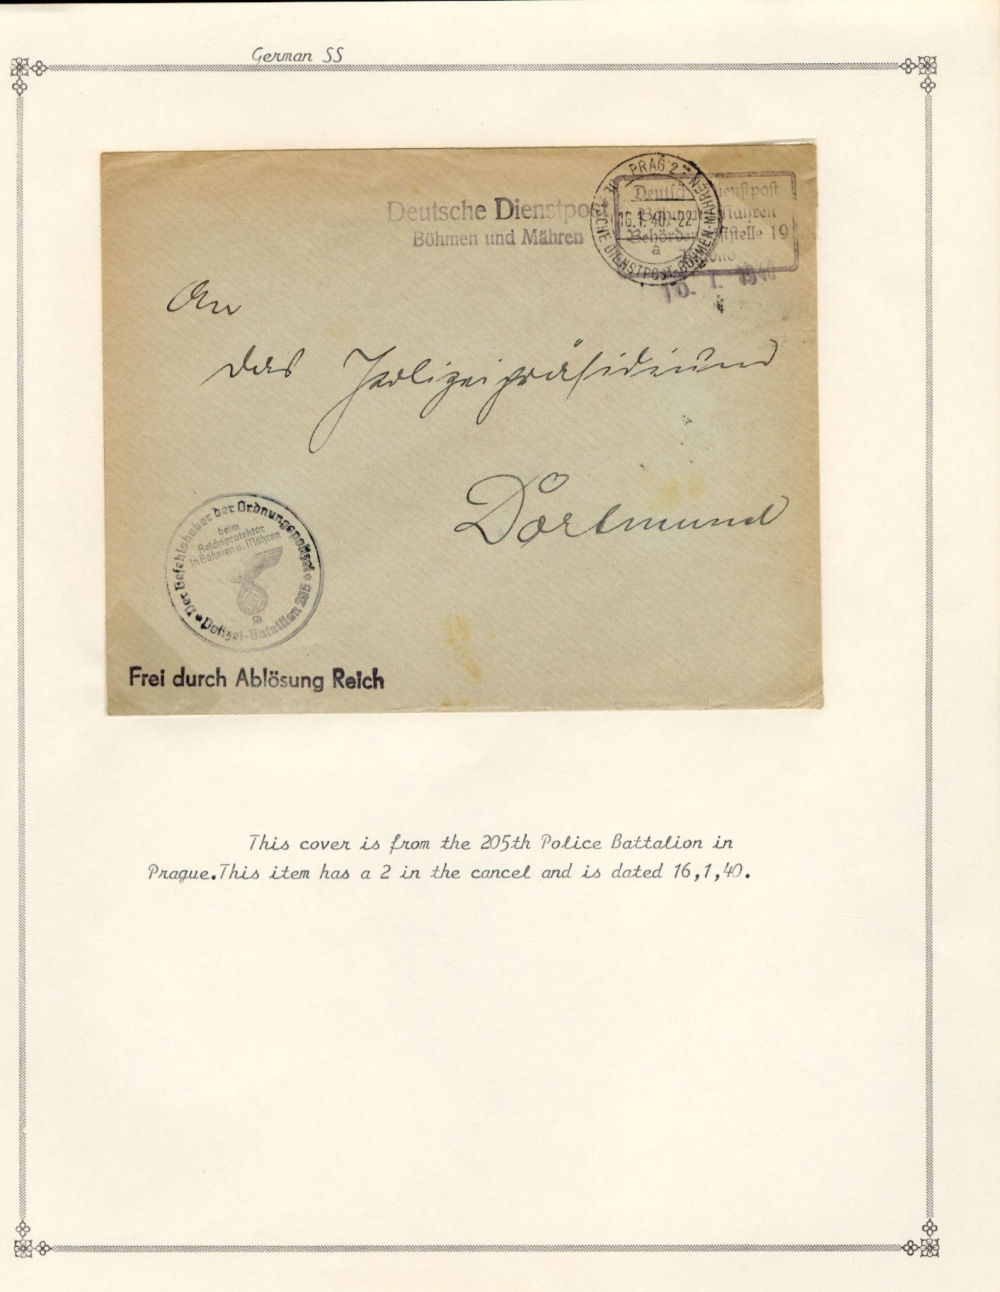 German SS
Deutsche Dienstpost
Böhmen und Mähren
PRAG 2
16.1.40.-22
a
DEUTSCHE DIENSTPOST BÖHMEN-MÄHREN
Deutsche Dienstpost
Böhmen Mähren
19
1. 1940
An
das Polizeipräsidium
Dortmund
Der Befehlshaber der Ordnungspolizei
beim
Reichsprotektor
in Böhmen u. Mähren
a
Polizei-Bataillon 205
Frei durch Ablösung Reich
This cover is from the 205th Police Battalion in
Prague.This item has a 2 in the cancel and is dated 16,1,40.